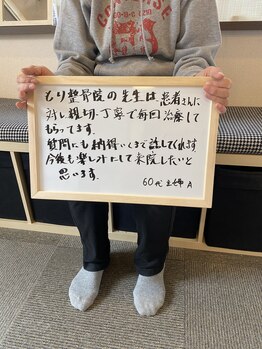 CONVERSE
もり整骨院の先生は、患者さんに
対し、親切、丁寧で毎回治療して
もらってます。
質問にも納得いくまで話してくれます
今後も楽しみにして来院したいと
思います。
60代 主婦 A